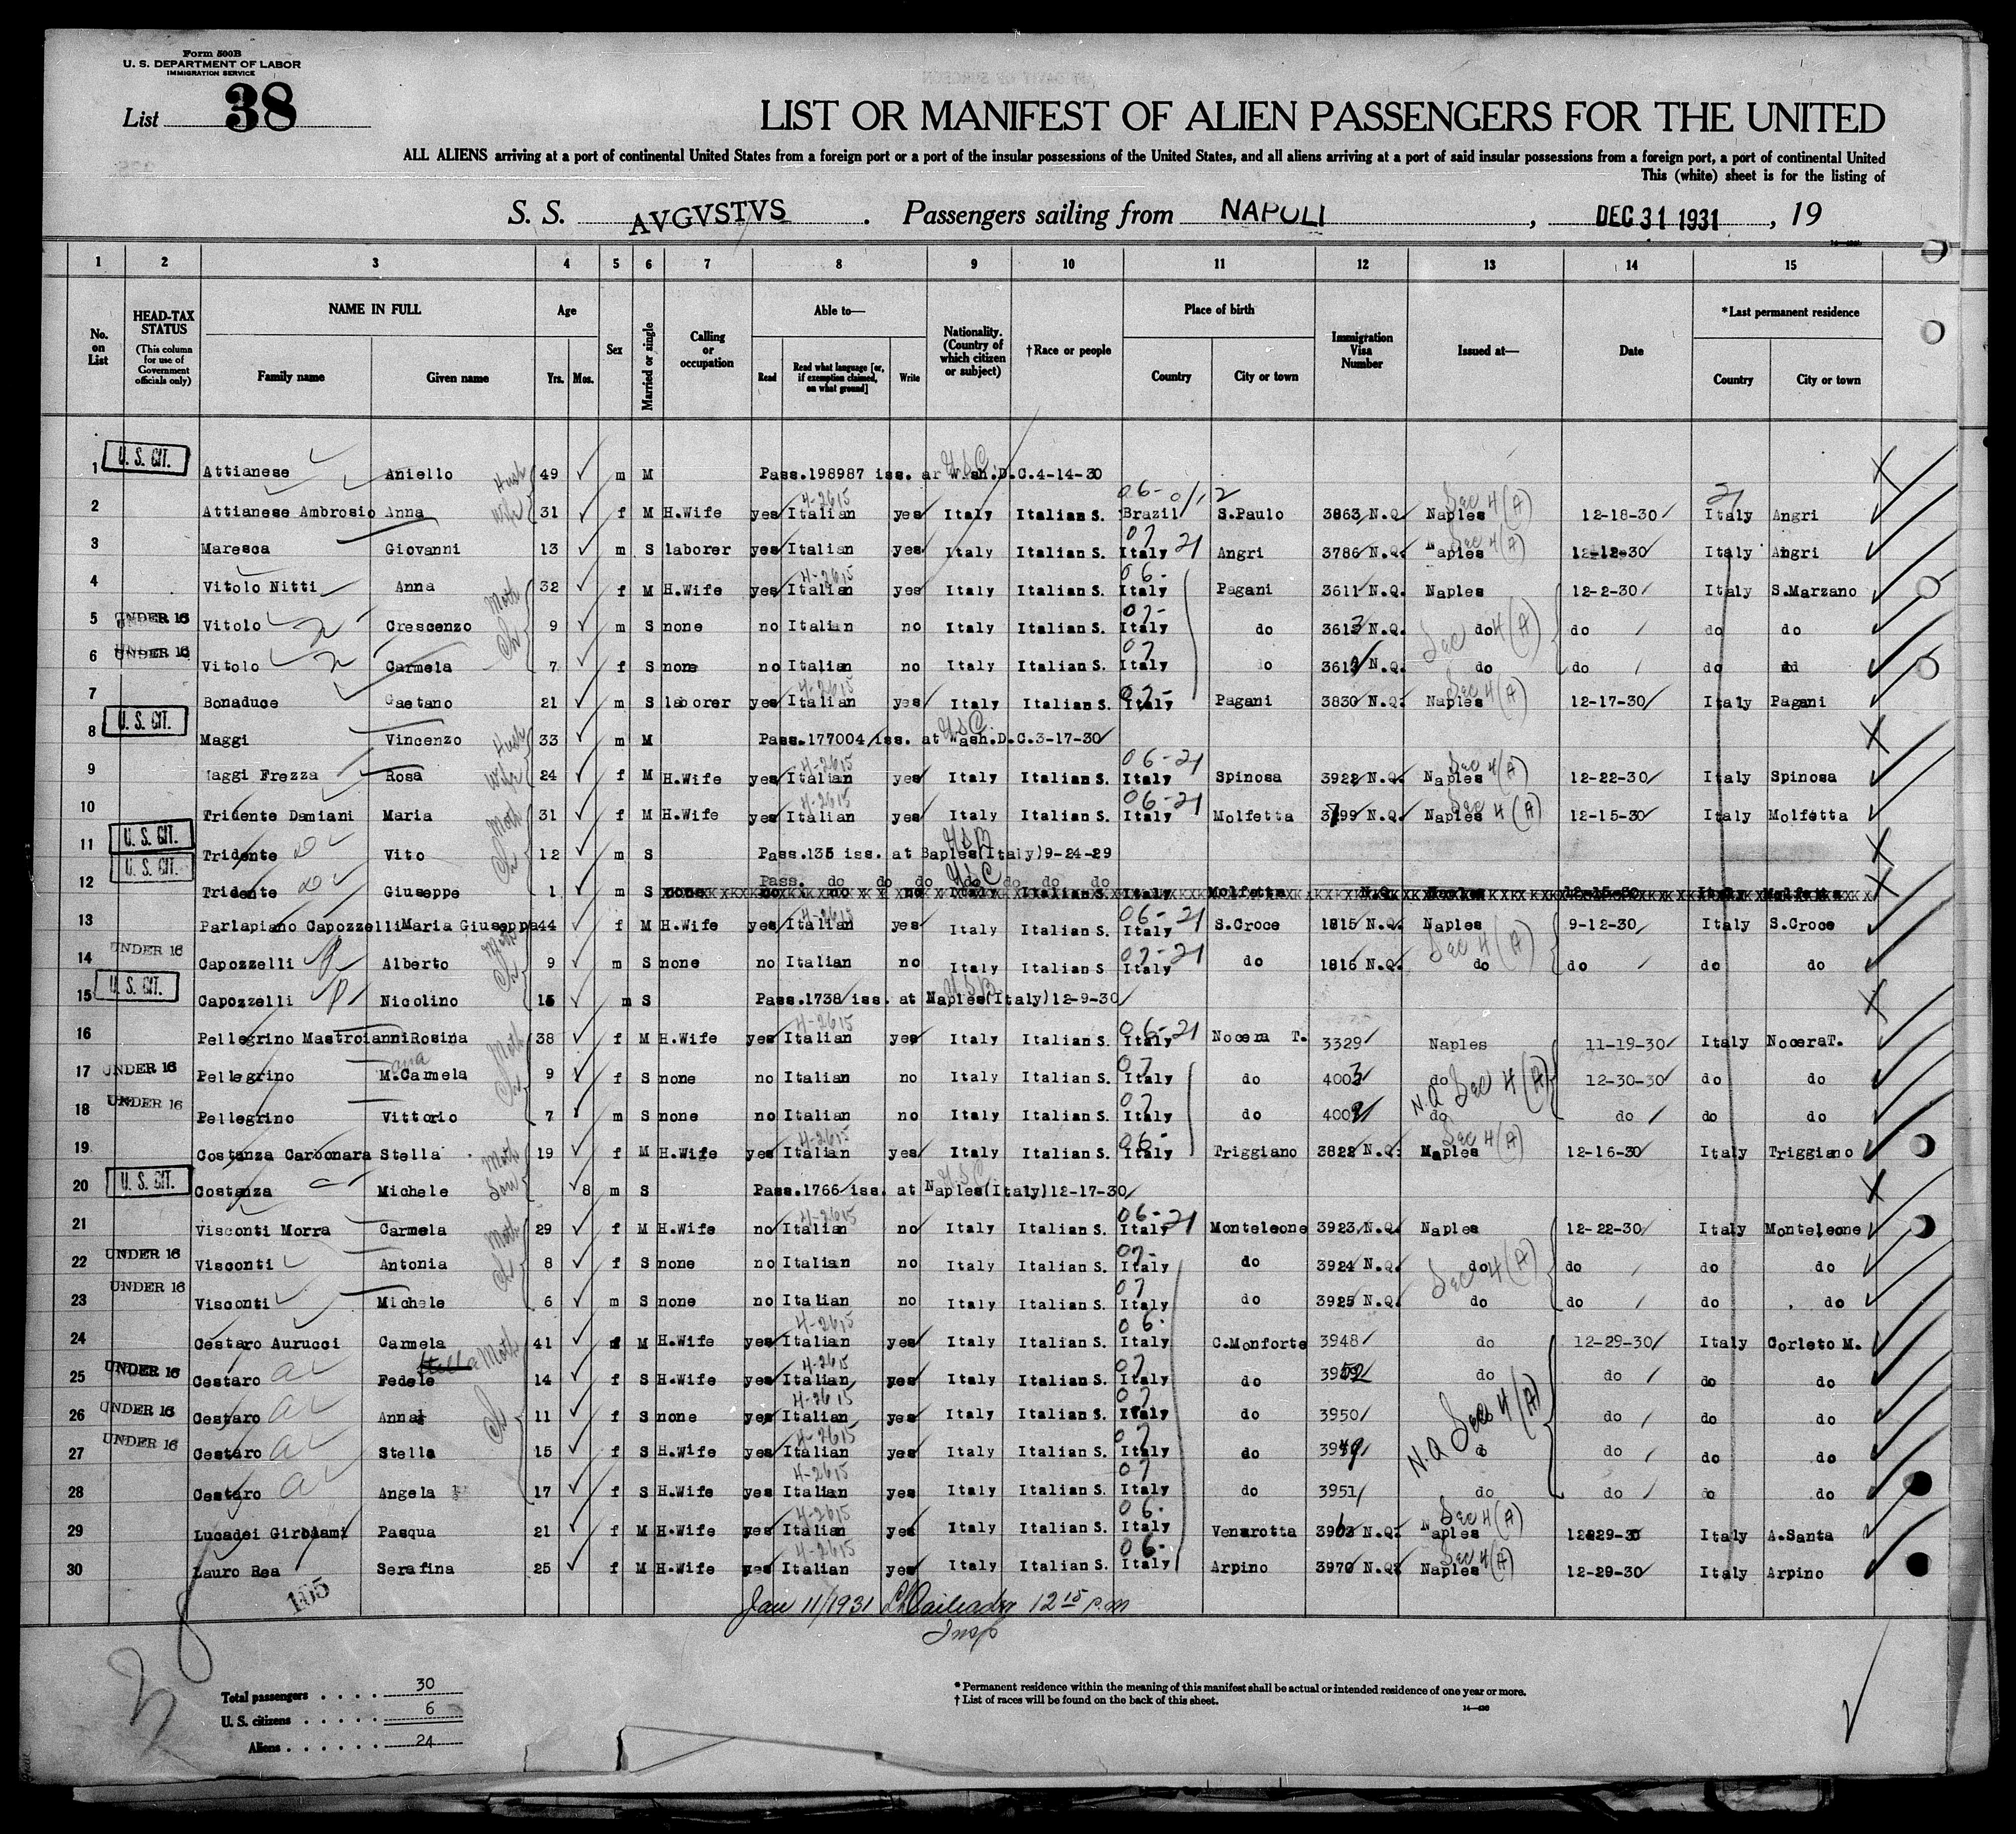 Form 500B
U. S. DEPARTMENT OF LABOR
IMMIGRATION SERVICE
List 38
LIST OR MANIFEST OF ALIEN PASSENGERS FOR THE UNITED
ALL ALIENS arriving at a port of continental United States from a foreign port or a port of the insular possessions of the United States, and all aliens arriving at a port of said insular possessions from a foreign port, a port of continental United
This (white) sheet is for the listing of
S. S. AVGVSTVS . Passengers sailing from NAPOLI , DEC 31 1931 , 19
1 2 3 4 5 6 7 8 9 10 11 12 13 14 15
No. on List
HEAD-TAX STATUS (This column for use of Government officials only)
NAME IN FULL Family name Given name
Age Yrs. Mos.
Sex
Married or single
Calling or occupation
Able to— Read Read what language [or, if exemption claimed, on what ground] Write
Nationality. (Country of which citizen or subject)
†Race or people
Place of birth Country City or town
Immigration Visa Number
Issued at—
Date
*Last permanent residence Country City or town
1 U. S. CIT. Attianese Aniello Husb 49 m M Pass.198987 iss. ar Wash.D.C.4-14-30 USC
2 Attianese Ambrosio Anna Wife 31 f M H.Wife yes Italian 4-2615 yes Italy Italian S. Brazil 06-0/12 S.Paulo 3863 N.Q. Naples Sec 4 (A) 12-18-30 Italy 21 Angri
3 Maresca Giovanni 13 m S laborer yes Italian yes Italy Italian S. Italy 07 21 Angri 3786 N.Q. Naples Sec 4 (A) 12-12-30 Italy Angri
4 Vitolo Nitti Anna Moth 32 f M H.Wife yes Italian 4-2615 yes Italy Italian S. Italy 06- Pagani 3611 N.Q. Naples 12-2-30 Italy S.Marzano
5 UNDER 16 Vitolo Crescenzo Ch 9 m S none no Italian no Italy Italian S. Italy 07- do 3613 N.Q. do Sec 4 (A) do do do
6 UNDER 16 Vitolo Carmela 7 f S none no Italian no Italy Italian S. Italy 07 do 3612 N.Q. do do do
7 Bonaduce Gaetano 21 m S laborer yes Italian 4-2615 yes Italy Italian S. Italy 07- Pagani 3830 N.Q. Naples Sec 4 (A) 12-17-30 Italy Pagani
8 U. S. CIT. Maggi Vincenzo Husb 33 m M Pass.177004 iss. at Wash.D.C.3-17-30 USC
9 Maggi Frezza Rosa Wife 24 f M H.Wife yes Italian 4-2615 yes Italy Italian S. Italy 06-21 Spinosa 3922 N.Q. Naples Sec 4 (A) 12-22-30 Italy Spinosa
10 Tridente Damiani Maria Moth 31 f M H.Wife yes Italian 4-2615 yes Italy Italian S. Italy 06-21 Molfetta 3799 N.Q. Naples Sec 4 (A) 12-15-30 Italy Molfetta
11 U. S. CIT. Tridente Vito Ch 12 m S Pass.135 iss. at Baples(Italy)9-24-29 USB
12 U. S. CIT. Tridente Giuseppe 1 m S Pass. do do do do do do do USC none no no no Italy Italian S. Italy Molfetta N.Q. Naples 12-15-30 Italy Molfetta
13 Parlapiano Capozzelli Maria Giuseppa 44 f M H.Wife yes Italian 4-2615 yes Italy Italian S. Italy 06-21 S.Croce 1815 N.Q. Naples 9-12-30 Italy S.Croce
14 UNDER 16 Capozzelli Alberto Moth Ch 9 m S none no Italian no Italy Italian S. Italy 07-21 do 1816 N.Q. do Sec 4 (A) do do do
15 U. S. CIT. Capozzelli Nicolino 15 m S Pass.1738 iss. at Naples(Italy)12-9-30 USB
16 Pellegrino Mastroianni Rosina Moth 38 f M H.Wife yes Italian 4-2615 yes Italy Italian S. Italy 06-21 Nocera T. 3329 Naples 11-19-30 Italy NoceraT.
17 UNDER 16 Pellegrino M.Carmela Ch 9 f S none no Italian no Italy Italian S. Italy 07 do 4003 do N.Q Sec 4 (A) 12-30-30 do do
18 UNDER 16 Pellegrino Vittorio 7 m S none no Italian no Italy Italian S. Italy 07 do 4002 do do do do
19 Costanza Carbonara Stella Moth 19 f M H.Wife yes Italian 4-2615 yes Italy Italian S. Italy 06- Triggiano 3822 N.Q. Naples Sec 4 (A) 12-16-30 Italy Triggiano
20 U. S. CIT. Costanza Michele Son 8 m S Pass.1766 iss. at Naples(Italy)12-17-30 USC
21 Visconti Morra Carmela Moth 29 f M H.Wife no Italian 4-2615 no Italy Italian S. Italy 06-21 Monteleone 3923 N.Q. Naples 12-22-30 Italy Monteleone
22 UNDER 16 Visconti Antonia Ch 8 f S none no Italian no Italy Italian S. Italy 07- do 3924 N.Q. do Sec 4 (A) do do do
23 UNDER 16 Visconti Michele 6 m S none no Italian no Italy Italian S. Italy 07 do 3925 N.Q. do do do do
24 Cestaro Aurucci Carmela Moth 41 f M H.Wife yes Italian 4-2615 yes Italy Italian S. Italy 06- C.Monforte 3948 do 12-29-30 Italy Corleto M.
25 UNDER 16 Cestaro Fedele Stella 14 f S H.Wife yes Italian 4-2615 yes Italy Italian S. Italy 07 do 3952 do do do do
26 UNDER 16 Cestaro Anna Ch 11 f S none yes Italian 4-2615 yes Italy Italian S. Italy 07 do 3950 N.Q Sec 4 (A) do do do
27 UNDER 16 Cestaro Stella 15 f S H.Wife yes Italian 4-2615 yes Italy Italian S. Italy 07 do 3949 do do do do
28 Cestaro Angela 17 f S H.Wife yes Italian 4-2615 yes Italy Italian S. Italy 07 do 3951 do do do do
29 Lucadei Girolami Pasqua 21 f M H.Wife yes Italian 4-2615 yes Italy Italian S. Italy 06- Venarotta 3963 N.Q. Naples Sec 4 (A) 12-29-30 Italy A.Santa
30 Lauro Rea Serafina 25 f M H.Wife yes Italian 4-2615 yes Italy Italian S. Italy 06- Arpino 3970 N.Q. Naples Sec 4 (A) 12-29-30 Italy Arpino
105
Jan 11/1931 12 15 p.m
Insp
Total passengers . . . . 30
U. S. citizens . . . . . 6
Aliens . . . . . . 24
* Permanent residence within the meaning of this manifest shall be actual or intended residence of one year or more.
† List of races will be found on the back of this sheet.
14—430